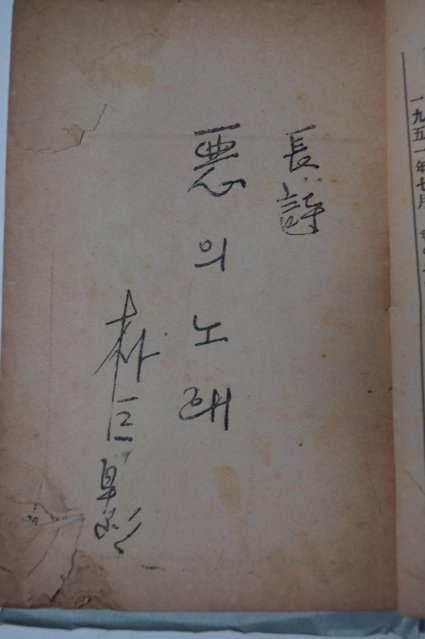 一九五一年七月
長詩
悪의노래
朴巨影